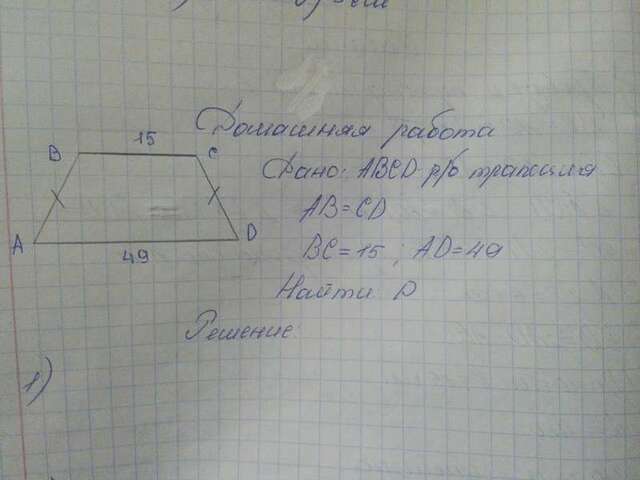 Домашняя работа
15
B
C
Дано: ABCD р/б трапеция
AB=CD
A
D
BC=15 ; AD=49
49
Найти P
Решение:
1)